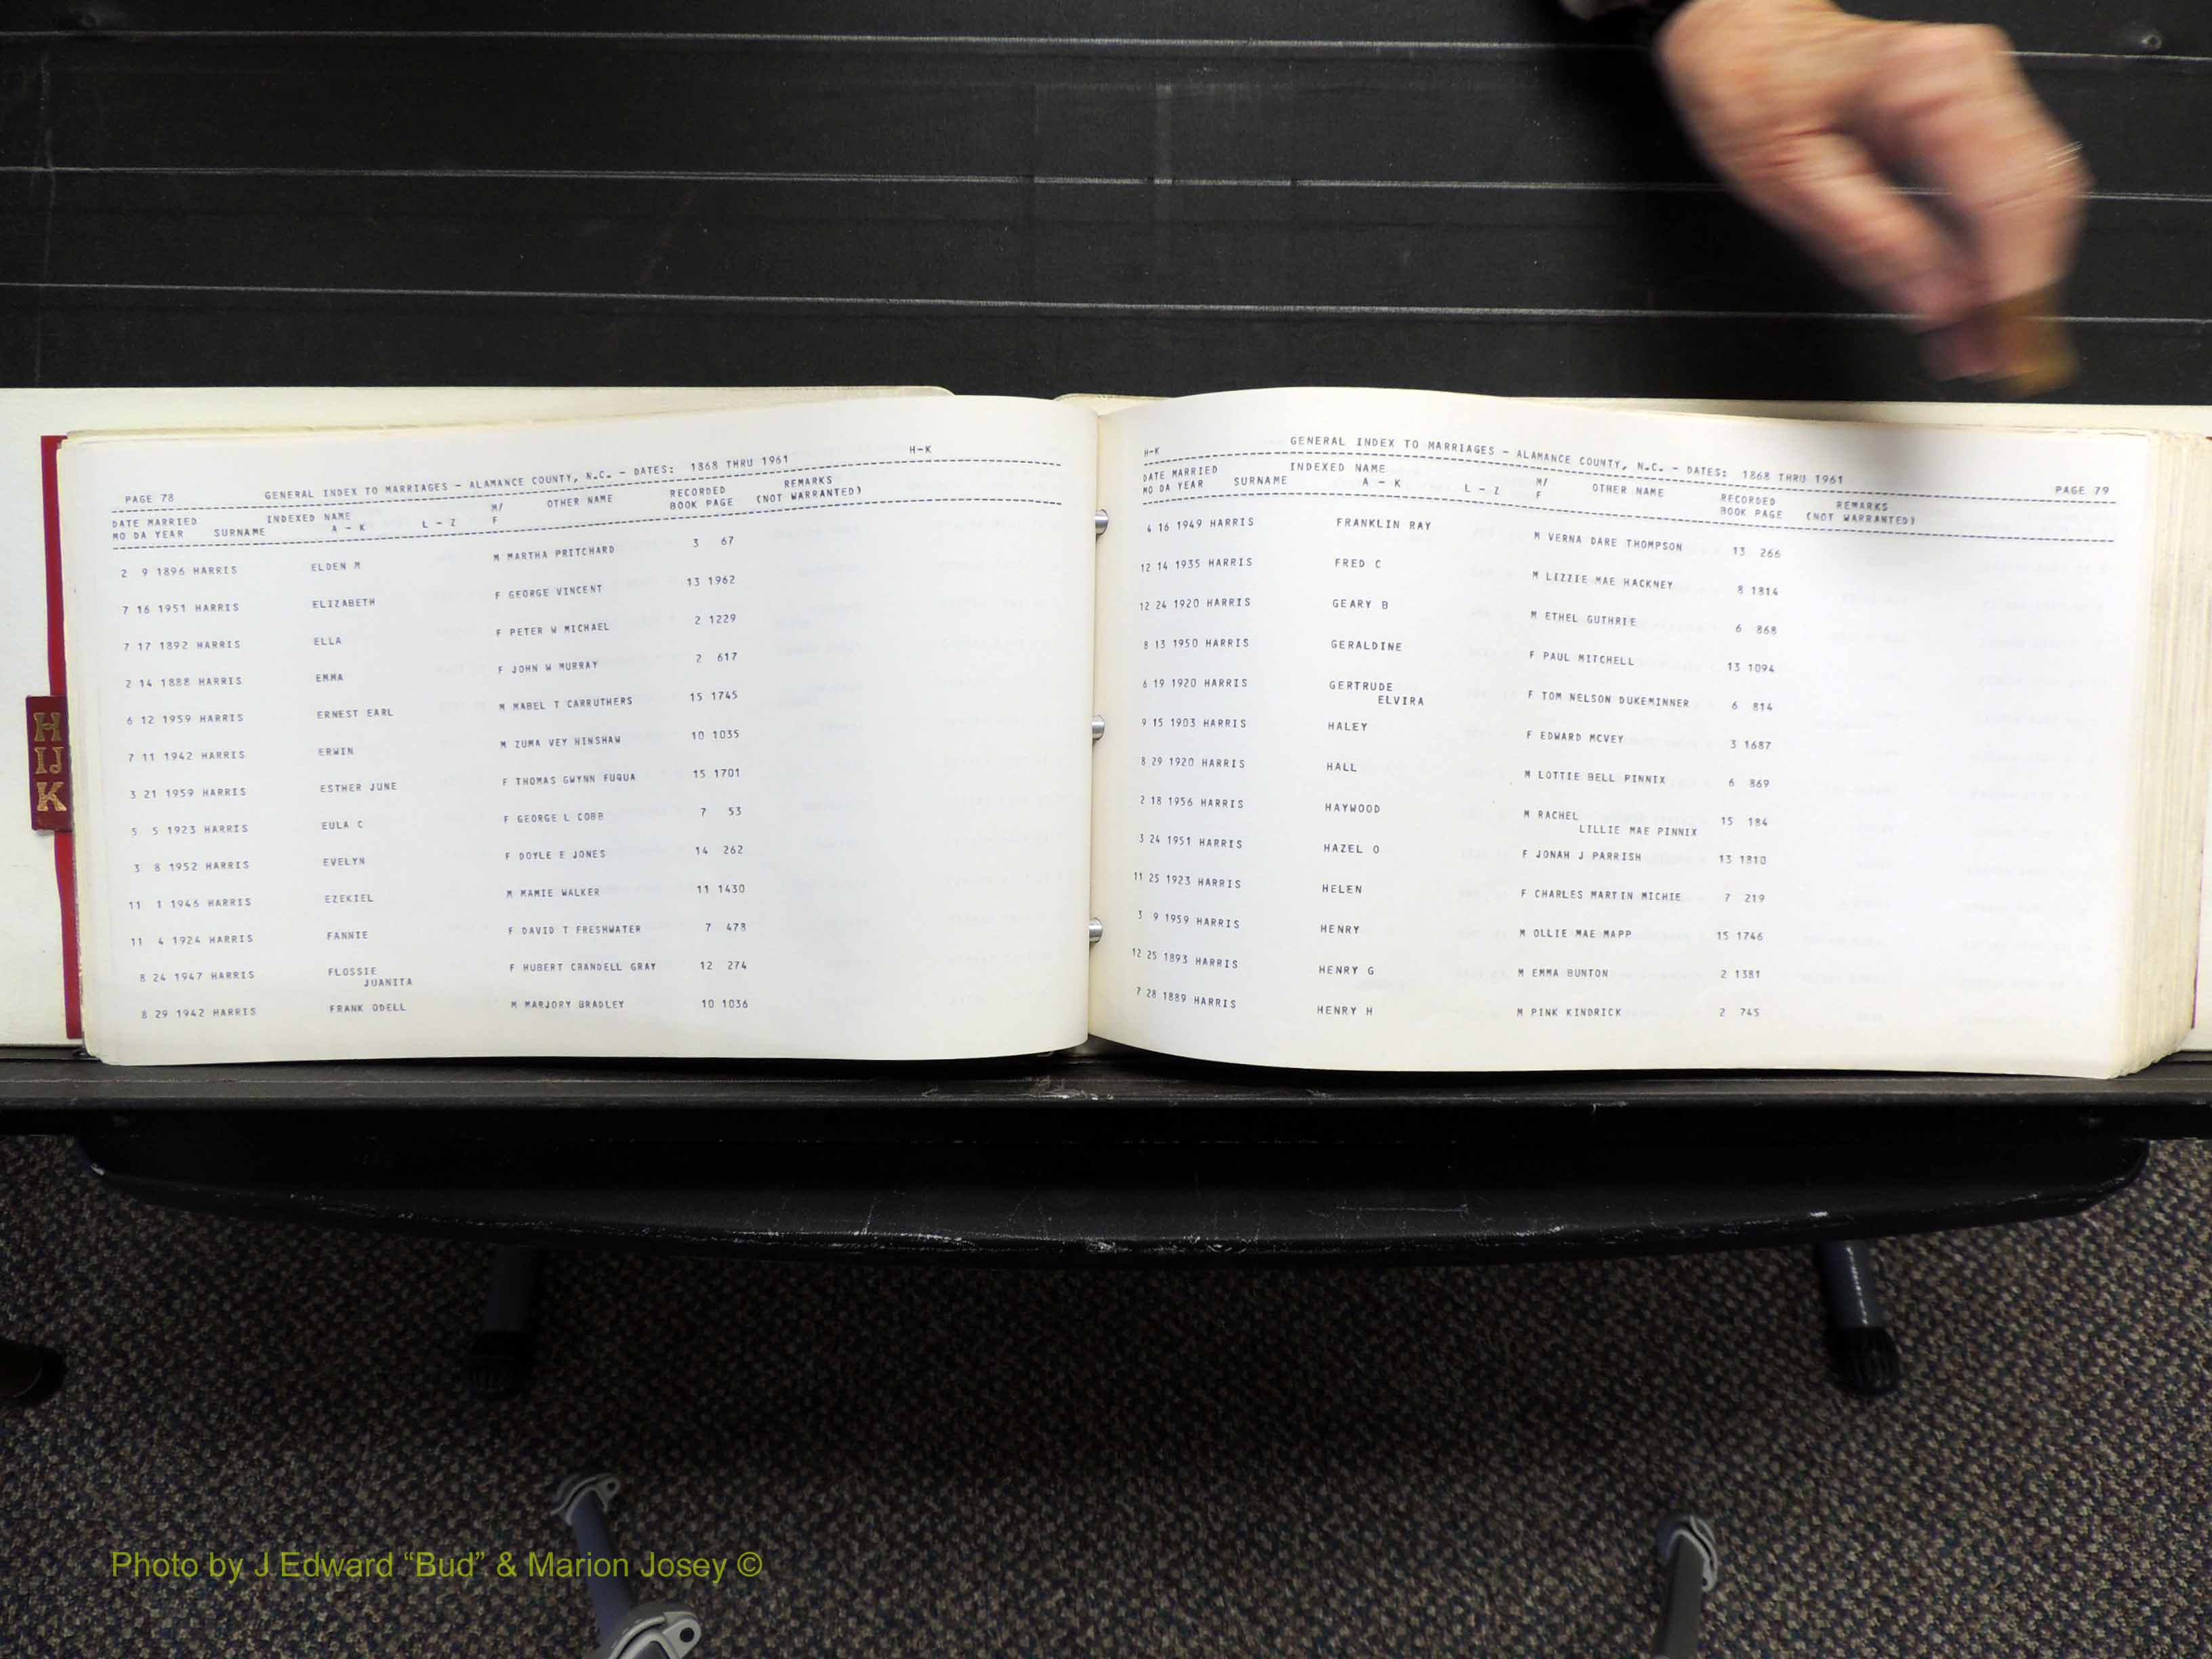 H
IJ
K
PAGE 78 GENERAL INDEX TO MARRIAGES - ALAMANCE COUNTY, N.C. - DATES: 1868 THRU 1961 H-K
DATE MARRIED INDEXED NAME M/ OTHER NAME RECORDED REMARKS
MO DA YEAR SURNAME A - K L - Z F BOOK PAGE (NOT WARRANTED)
2 9 1896 HARRIS ELDEN M M MARTHA PRITCHARD 3 67
7 16 1951 HARRIS ELIZABETH F GEORGE VINCENT 13 1962
7 17 1892 HARRIS ELLA F PETER W MICHAEL 2 1229
2 14 1888 HARRIS EMMA F JOHN W MURRAY 2 617
6 12 1959 HARRIS ERNEST EARL M MABEL T CARRUTHERS 15 1745
7 11 1942 HARRIS ERWIN M ZUMA VEY HINSHAW 10 1035
3 21 1959 HARRIS ESTHER JUNE F THOMAS GWYNN FUQUA 15 1701
5 5 1923 HARRIS EULA C F GEORGE L COBB 7 53
3 8 1952 HARRIS EVELYN F DOYLE E JONES 14 262
11 1 1946 HARRIS EZEKIEL M MAMIE WALKER 11 1430
11 4 1924 HARRIS FANNIE F DAVID T FRESHWATER 7 473
8 24 1947 HARRIS FLOSSIE F HUBERT CRANDELL GRAY 12 274
JUANITA
8 29 1942 HARRIS FRANK ODELL M MARJORY BRADLEY 10 1036
H-K GENERAL INDEX TO MARRIAGES - ALAMANCE COUNTY, N.C. - DATES: 1868 THRU 1961 PAGE 79
DATE MARRIED INDEXED NAME M/ OTHER NAME RECORDED REMARKS
MO DA YEAR SURNAME A - K L - Z F BOOK PAGE (NOT WARRANTED)
4 16 1949 HARRIS FRANKLIN RAY M VERNA DARE THOMPSON 13 266
12 14 1935 HARRIS FRED C M LIZZIE MAE HACKNEY 8 1814
12 24 1920 HARRIS GEARY B M ETHEL GUTHRIE 6 868
8 13 1950 HARRIS GERALDINE F PAUL MITCHELL 13 1094
6 19 1920 HARRIS GERTRUDE F TOM NELSON DUKEMINNER 6 814
ELVIRA
9 15 1903 HARRIS HALEY F EDWARD MCVEY 3 1687
8 29 1920 HARRIS HALL M LOTTIE BELL PINNIX 6 869
2 18 1956 HARRIS HAYWOOD M RACHEL 15 184
LILLIE MAE PINNIX
3 24 1951 HARRIS HAZEL O F JONAH J PARRISH 13 1810
11 25 1923 HARRIS HELEN F CHARLES MARTIN MICHIE 7 219
3 9 1959 HARRIS HENRY M OLLIE MAE MAPP 15 1746
12 25 1893 HARRIS HENRY G M EMMA BUNTON 2 1381
7 28 1889 HARRIS HENRY H M PINK KINDRICK 2 745
Photo by J Edward “Bud” & Marion Josey ©